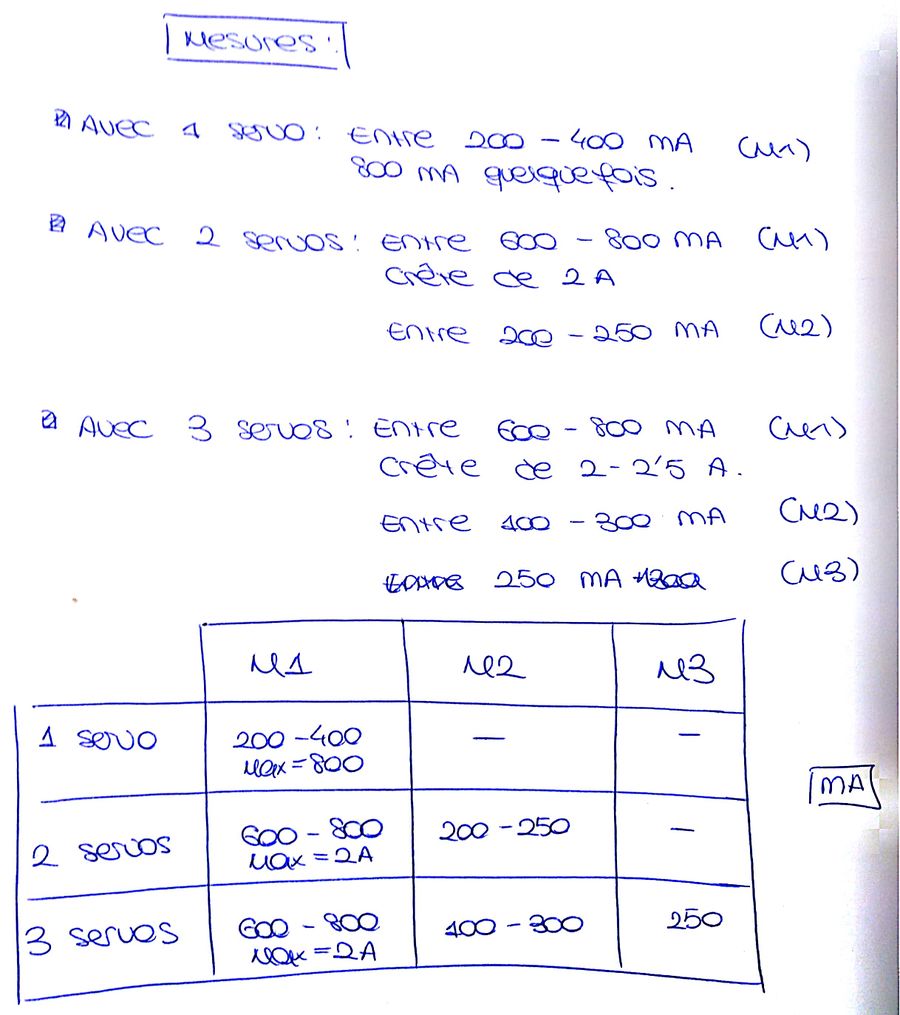 Mesures:
Avec 1 servo: Entre 200 - 400 mA (M1)
800 mA quelquefois.
Avec 2 servos: Entre 600 - 800 mA (M1)
Crête de 2 A
Entre 200 - 250 mA (M2)
Avec 3 servos: Entre 600 - 800 mA (M1)
Crête de 2 - 2'5 A.
Entre 400 - 300 mA (M2)
250 mA (M3)
M1 M2 M3
1 servo 200 - 400 — —
Max = 800
mA
2 servos 600 - 800 200 - 250 —
Max = 2A
3 servos 600 - 800 400 - 300 250
Max = 2A